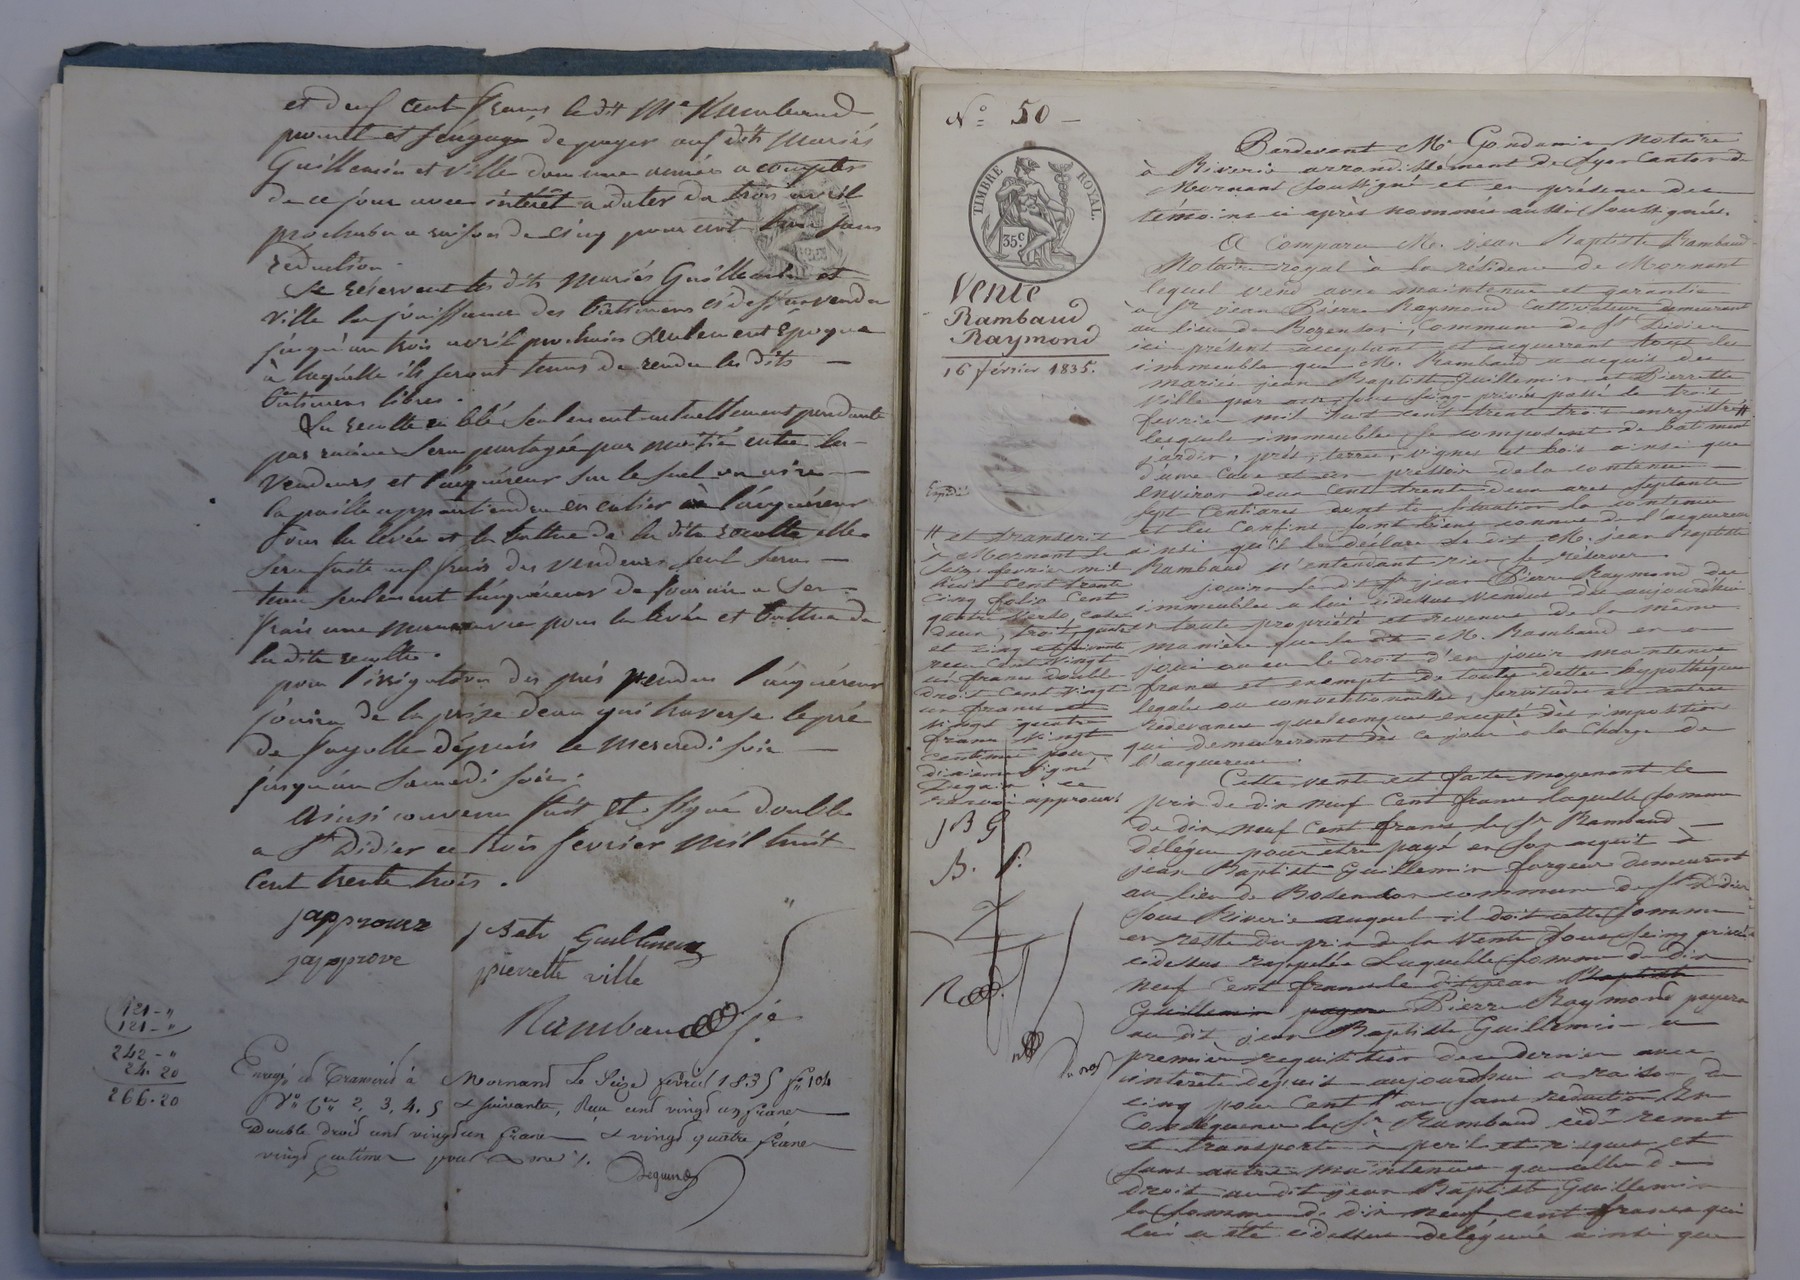 et deux cent francs le dit Me Rambaud
promet et s'engage de payer aux dits mariés
Guillemin et Ville dans une année a compter
de ce jour avec intérêt a dater du trois avril
prochain a raison de cinq pour cent sans
reduction.
Se reservent les dits mariés Guillemin et
Ville la jouissance des bâtimens cidessus vendu
jusqu'au trois avril prochain seulement époque
à laquelle ils seront tenus de rendre les dits
bâtimens libres.
La recolte en blé seulement actuellement pendante
par racines sera partagée par moitié entre les
vendeurs et l'acquéreur sur le sol en aire
la paille appartiendra en entier à l'acquéreur
Pour la levée et la battue de la dite recolte elle
sera faite aux frais des vendeurs seul sera
tenu seulement l'acquéreur de fournir a ses
frais une manœuvre pour la levée et battue de
la dite recolte.
pour l'irrigation des prés vendus l'acquéreur
jouira de la prise d'eau qui traverse le pré
de Fayolle dépuis le mercredi soir
jusqu'au Samedi soir.
Ainsi convenu fait et signé double
a St Didier ce trois fevrier mil huit
cent trente trois.
japprouve jBate Guillemin
japprove pierrette ville
Rambaud
121 - "
121 - "
242 - "
24.20
266.20
Enregé et Transcrit à Mornand Le Seize février 1835 fo 104
Vo Ces 2, 3, 4, 5 & suivantes, Reçu cent vingt un francs
Double droit cent vingt un francs & vingt quatre francs
vingt centimes pour dixme %.
No 50
TIMBRE ROYAL.
35c
Vente
Rambaud
Raymond
16 février 1835.
Expédié
# et transcrit
à Mornant le
seize fevrier mil
huit cent trente
cinq folio cent
quatre verso, case
deux, trois, quatre
et cinq et suivante
recu cent vingt
un francs double
droit cent vingt
un francs et
vingt quatre
francs vingt
centimes pour
dixième signé
Dequin. ce
renvoi approuvé
JBG
B. P.
R
Pardevant Me Gondamin Notaire
à Riverie arrondissement de Lyon canton de
Mornant soussigné et en présence des
témoins ci après nommés aussi soussignés.
A Comparu M. jean Baptiste Rambaud
Notaire royal à la résidence de Mornant
lequel vend avec maintenue et garantie
à Sr jean Pierre Raymond cultivateur demeurant
au lieu de Bozendon, commune de St Didier
ici présent acceptant et acquerrant tous les
immeubles que M. Rambaud a acquis des
mariés jean Baptiste Guillemin et Pierrette
Ville par acte sous seing-privé passé le trois
fevrier mil huit cent trente trois enregistré #
lesquels immeubles se composent de batiment
jardin, prés, terres, vignes et bois ainsi que
d'une Cuve et un pressoir de la contenue
environ deux cent trente deux ares septante
sept Centiares dont la situation la contenue
et les confins sont bien connus de l'acquereur
ainsi qu'il le déclare le dit M. jean Baptiste
Rambaud n'entendant rien se réserver.
jouira le dit Sr jean Pierre Raymond des
immeubles a lui cidessus vendus dès aujourd'hui
en toute propriété et revenus de la même
manière que le dit M. Rambaud en a
joui ou eu le droit d'en jouir maintenus
francs et exempts de toute dettes hypothèque
légales ou conventionnelles, servitudes et autres
redevances quelconques excepté dès impositions
qui demeureront dès ce jour a la charge de
l'acquereur.
Cette vente est faite moyennant le
prix de dix neuf cent francs laquelle somme
de dix neuf cent francs le Sr Rambaud
délégue pour être payé en son acquit à
jean Baptiste Guillemin forgeur demeurant
au lieu de Bosendon commune de St Didier
sous Riverie auquel il doit cette somme
en reste du prix de la vente sous seing privé
cidessus rappelée Laquelle somme de dix
neuf cent francs le dit jean Baptiste
Guillemin payera Pierre Raymond payera
au dit jean Baptiste Guillemin a
première requisition de ce dernier avec
intérêts dépuis aujourd'hui a raison de
cinq pour cent l'an sans reduction. En
Conséquence le Sr Rambaud cède remet
et transporte à peril et risques et
sans autre maintenue que celle de
droit au dit jean Baptiste Guillemin
la somme de dix neuf cent francs qui
lui a été cidessus deléguée ainsi que